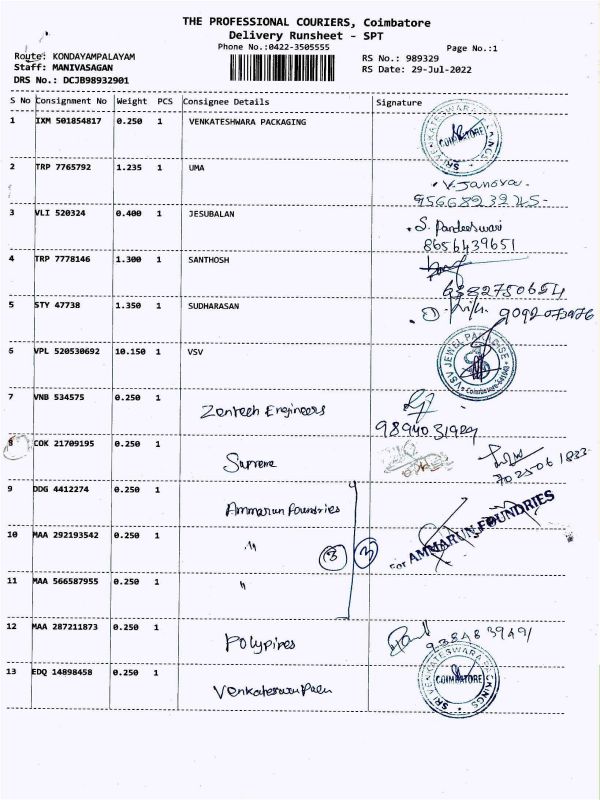 THE PROFESSIONAL COURIERS, Coimbatore
Delivery Runsheet - SPT
Phone No.:0422-3505555
Page No.:1
Route: KONDAYAMPALAYAM
RS No.: 989329
Staff: MANIVASAGAN
RS Date: 29-Jul-2022
DRS No.: DCJB98932901
S No Consignment No Weight PCS Consignee Details Signature
1 IXM 501854817 0.250 1 VENKATESHWARA PACKAGING
SRI VENKATESWARA PACKINGS COIMBATORE
2 TRP 7765792 1.235 1 UMA
V. Janova
9566823925-
3 VLI 520324 0.400 1 JESUBALAN
S. Pandeeswari
8656439651
4 TRP 7778146 1.300 1 SANTHOSH
6382750654
5 STY 47738 1.350 1 SUDHARASAN
9092073976
6 VPL 520530692 10.150 1 VSV
VSV JEWEL PARADISE
7 VNB 534575 0.250 1 Zentech Engineers
9894031929
8 COK 21709195 0.250 1 Supreme
7025061833
9 DDG 4412274 0.250 1 Ammarun Foundries
For AMMARUN FOUNDRIES
10 MAA 292193542 0.250 1 "
3 3
11 MAA 566587955 0.250 1 "
12 MAA 287211873 0.250 1 Polypipes
13 EDQ 14898458 0.250 1 Venkateswara
SRI VENKATESWARA PACKINGS COIMBATORE